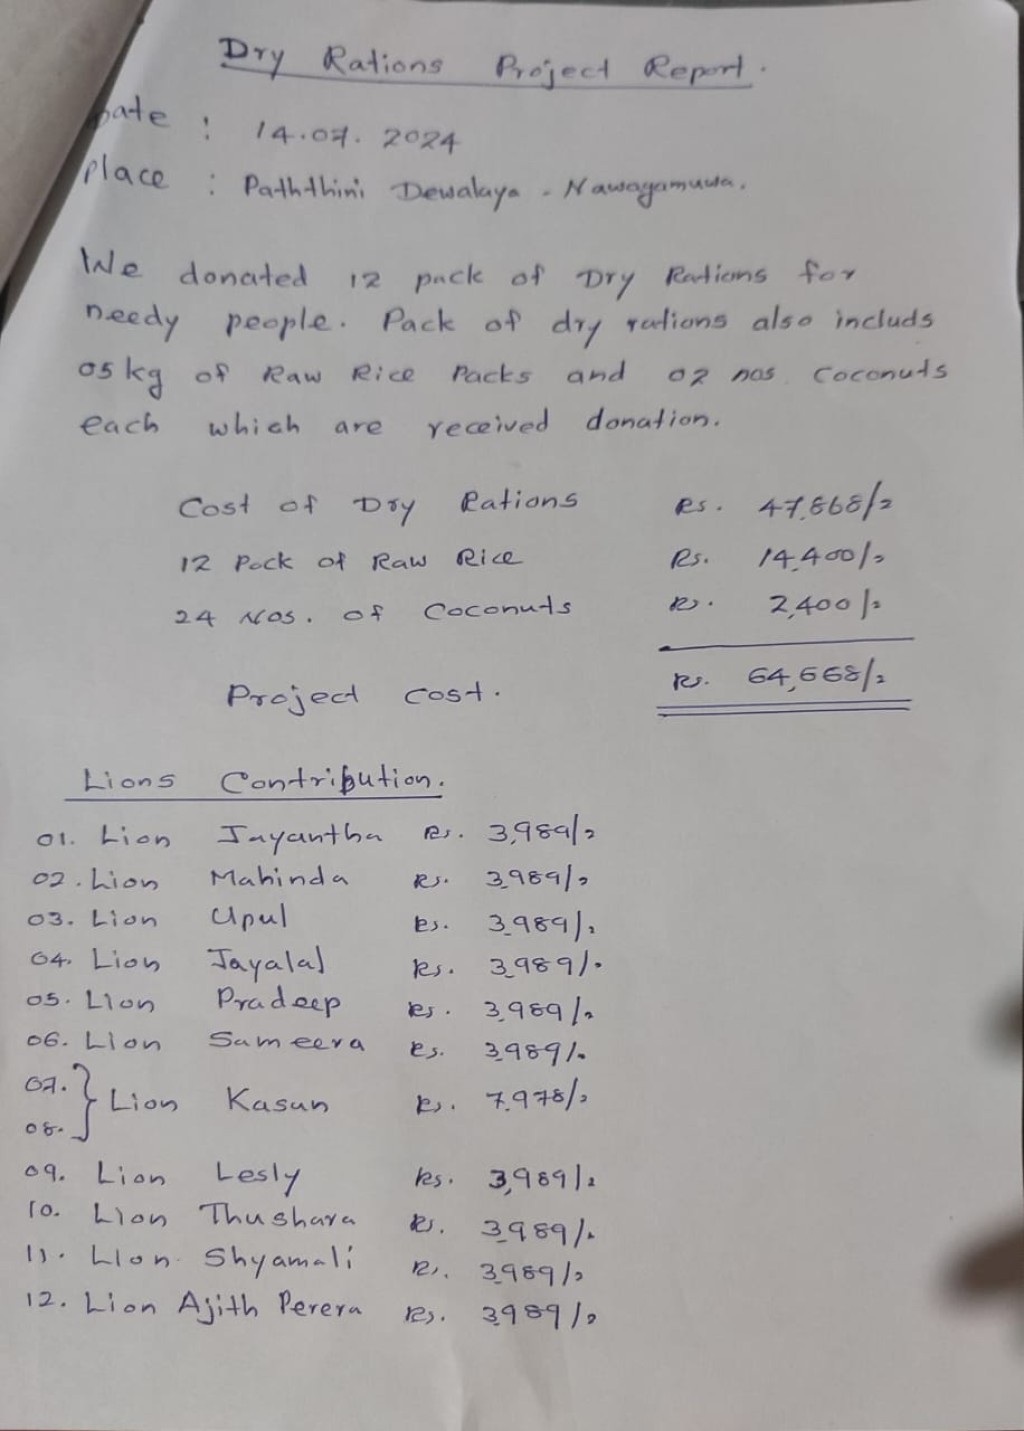 Dry Rations Project Report.
Date : 14.07.2024
Place : Paththini Dewalaya - Nawagamuwa.
We donated 12 pack of Dry Rations for
needy people. Pack of dry rations also includs
05 kg of Raw Rice Packs and 02 nos. Coconuts
each which are received donation.
Cost of Dry Rations Rs. 47,868/=
12 Pack of Raw Rice Rs. 14,400/=
24 Nos. of Coconuts Rs. 2,400/=
Project cost. Rs. 64,668/=
Lions Contribution.
01. Lion Jayantha Rs. 3,989/=
02. Lion Mahinda Rs. 3,989/=
03. Lion Upul Rs. 3,989/=
04. Lion Jayalal Rs. 3,989/=
05. Lion Pradeep Rs. 3,989/=
06. Lion Sameera Rs. 3,989/=
07.
08. } Lion Kasun Rs. 7,978/=
09. Lion Lesly Rs. 3,989/=
10. Lion Thushara Rs. 3,989/=
11. Lion Shyamali Rs. 3,989/=
12. Lion Ajith Perera Rs. 3,989/=